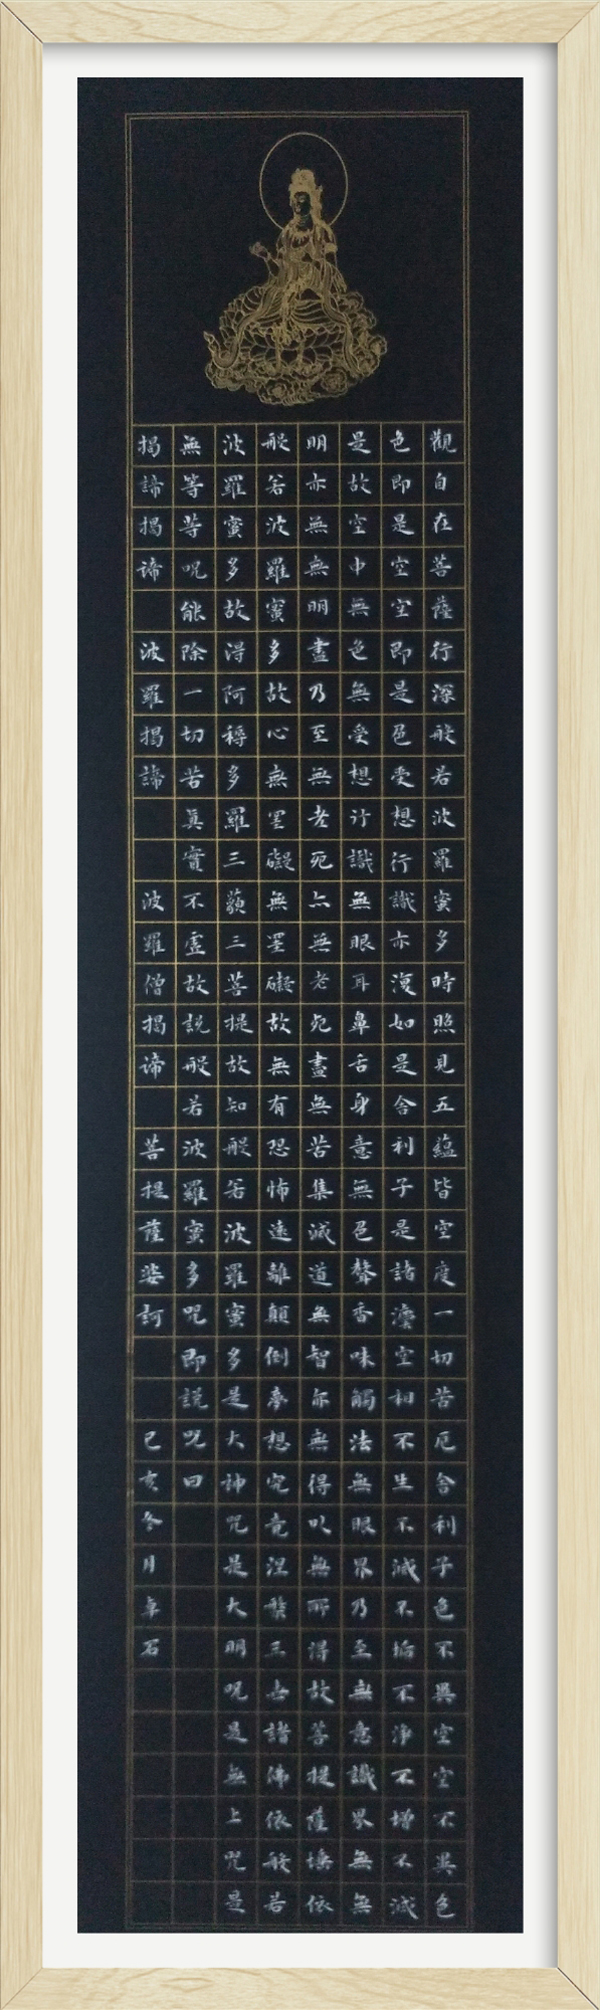 觀自在菩薩行深般若波羅蜜多時照見五蘊皆空度一切苦厄舍利子色不異空空不異色
色即是空空即是色受想行識亦復如是舍利子是諸灋空相不生不滅不垢不淨不增不減
是故空中無色無受想行識無眼耳鼻舌身意無色聲香味觸法無眼界乃至無意識界無無
明亦無無明盡乃至無老死亦無老死盡無苦集滅道無智亦無得以無所得故菩提薩埵依
般若波羅蜜多故心無罣礙無罣礙故無有恐怖遠離顛倒夢想究竟涅槃三世諸佛依般若
波羅蜜多故得阿耨多羅三藐三菩提故知般若波羅蜜多是大神咒是大明咒是無上咒是
無等等咒能除一切苦真實不虛故說般若波羅蜜多咒即說咒曰
揭諦揭諦 波羅揭諦 波羅僧揭諦 菩提薩婆訶 己亥冬月卓石